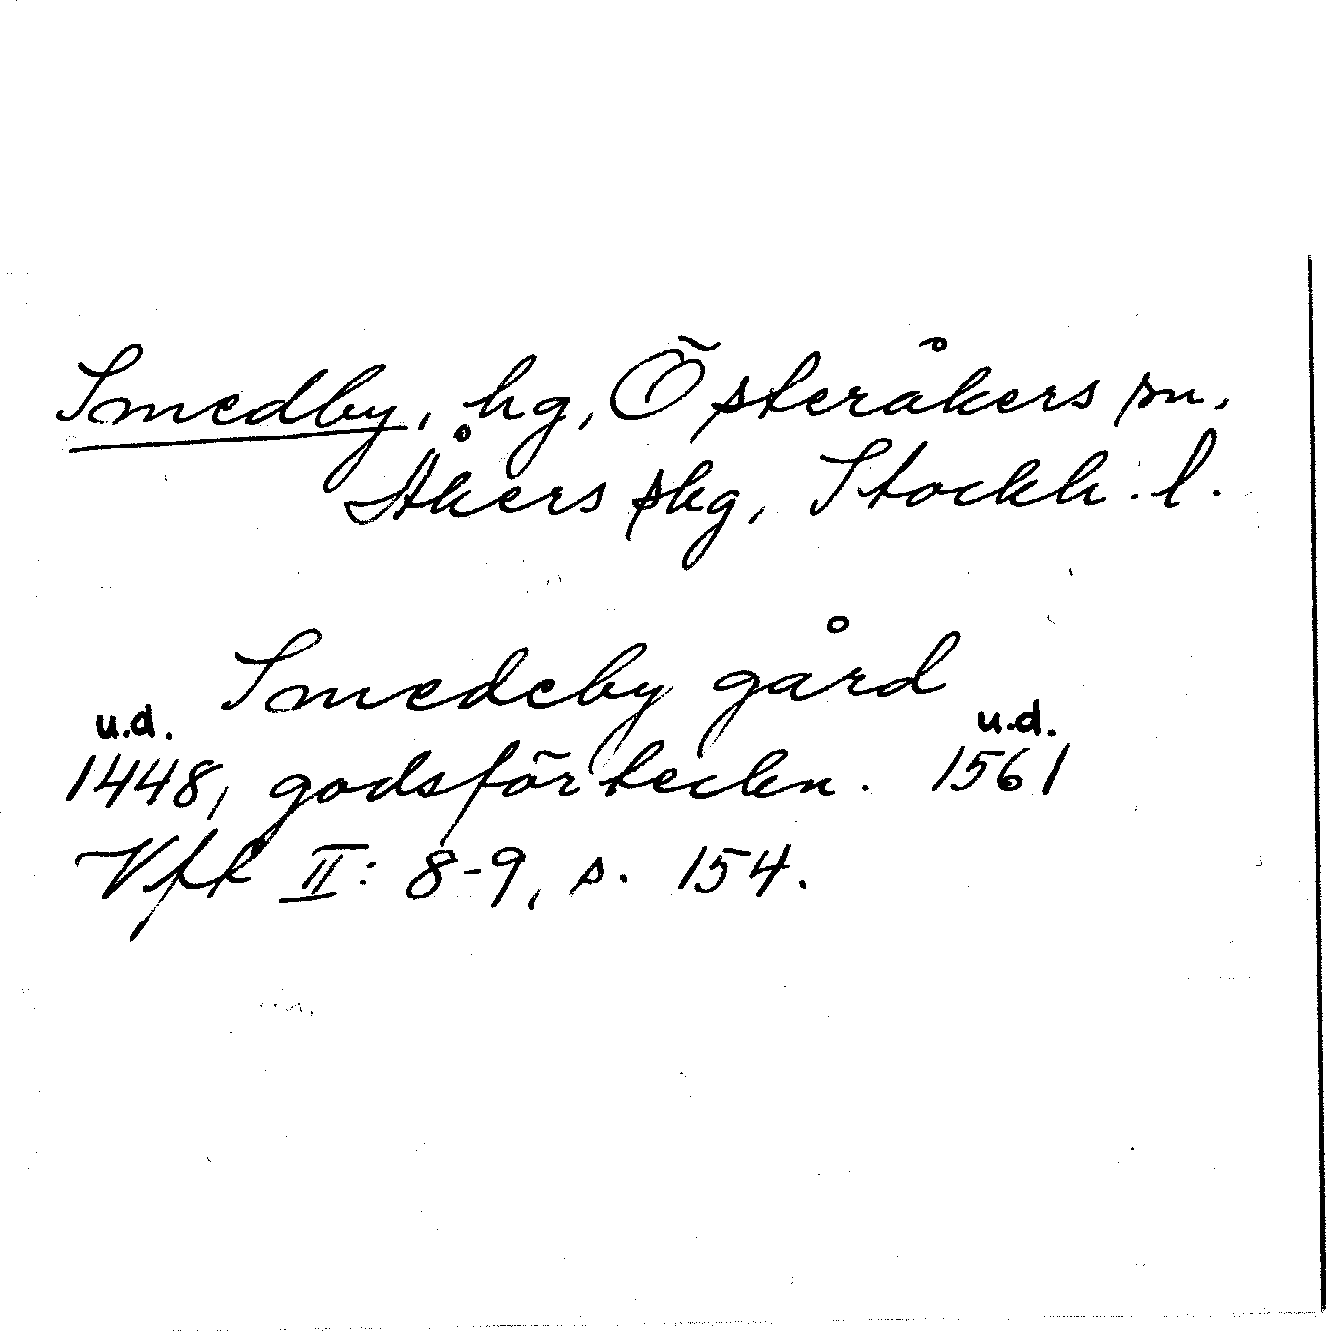 Smedby, hg, Österåkers sn,
Åkers skg, Stockh. l.
Smedeby gård
u.d. u.d.
1448, godsförteckn. 1561
Vfk II: 8-9, s. 154.